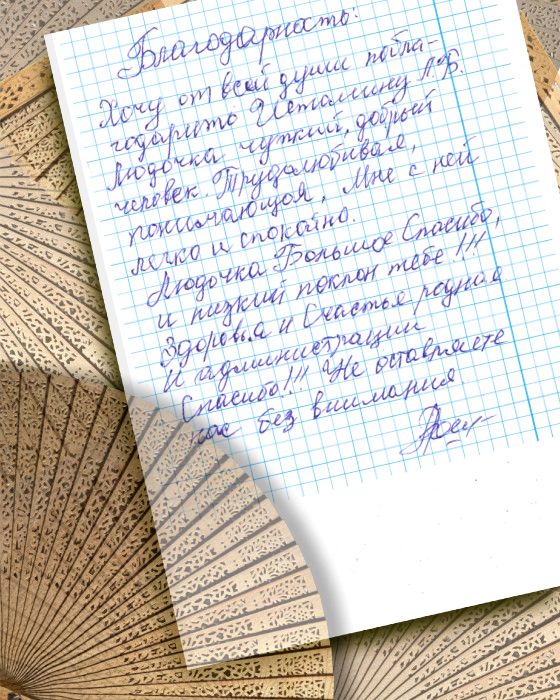 Благодарность:
Хочу от всей души побла-
годарить Истомину Л.Б.
Людочка чуткий, добрый
человек. Трудолюбивая,
понимающая, Мне с ней
легко и спокойно.
Людочка Большое Спасибо,
и низкий поклон тебе!!!
Здоровья и Счастья родная
И администрации
Спасибо!!! Не оставляете
нас без внимания.